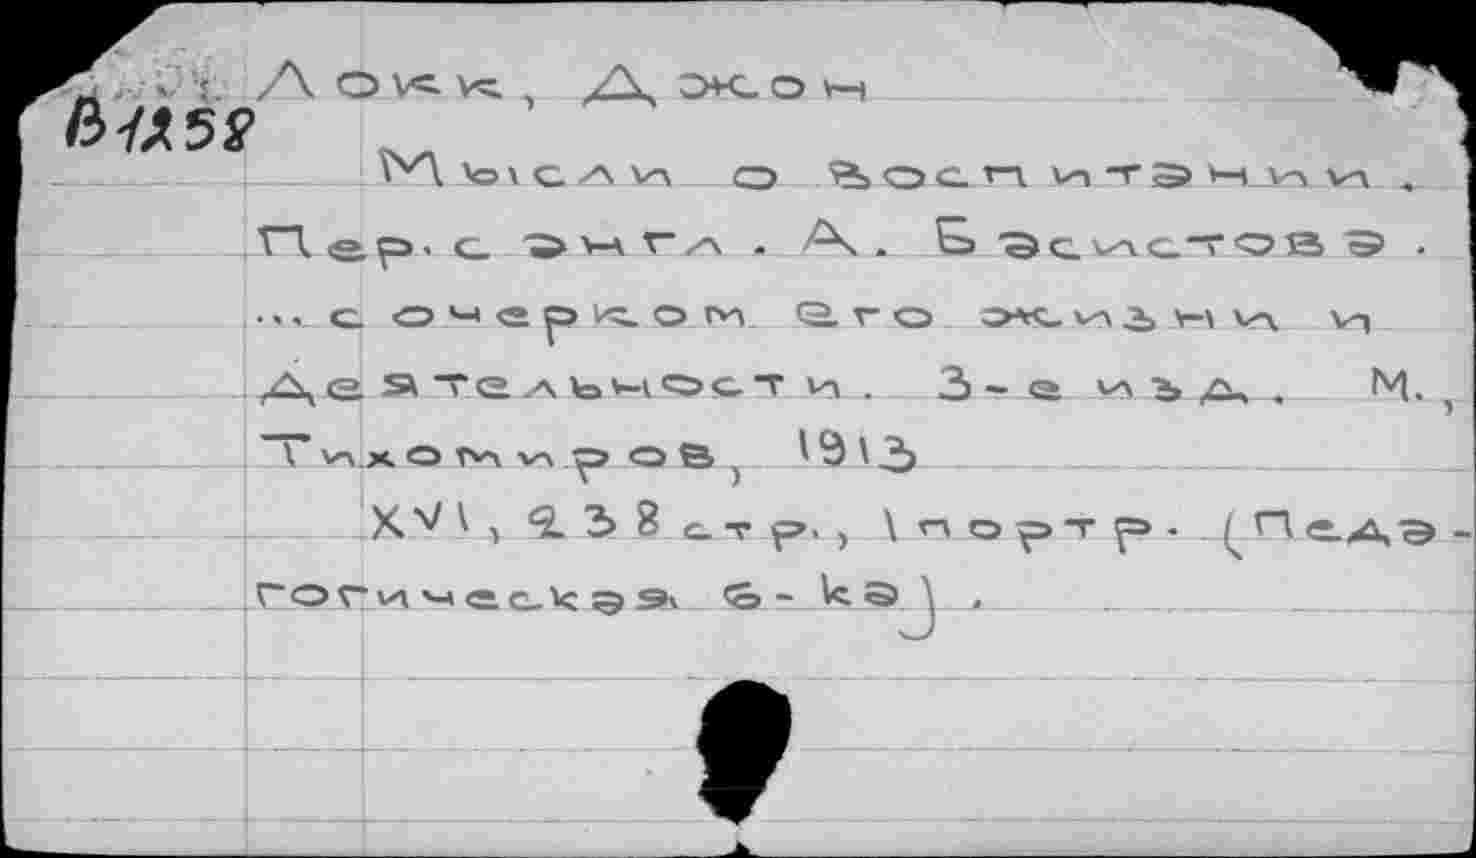 Локк, Джон
В1258
Мысли о воспитании.
Пер. с англ. А. Басистова.
... с очерком его жизни и
деятельности. 3-е изд. М.,
Тихомиров, 1913
XVI, 238 стр., 1 портр. (Педа-
гогическая б-ка).